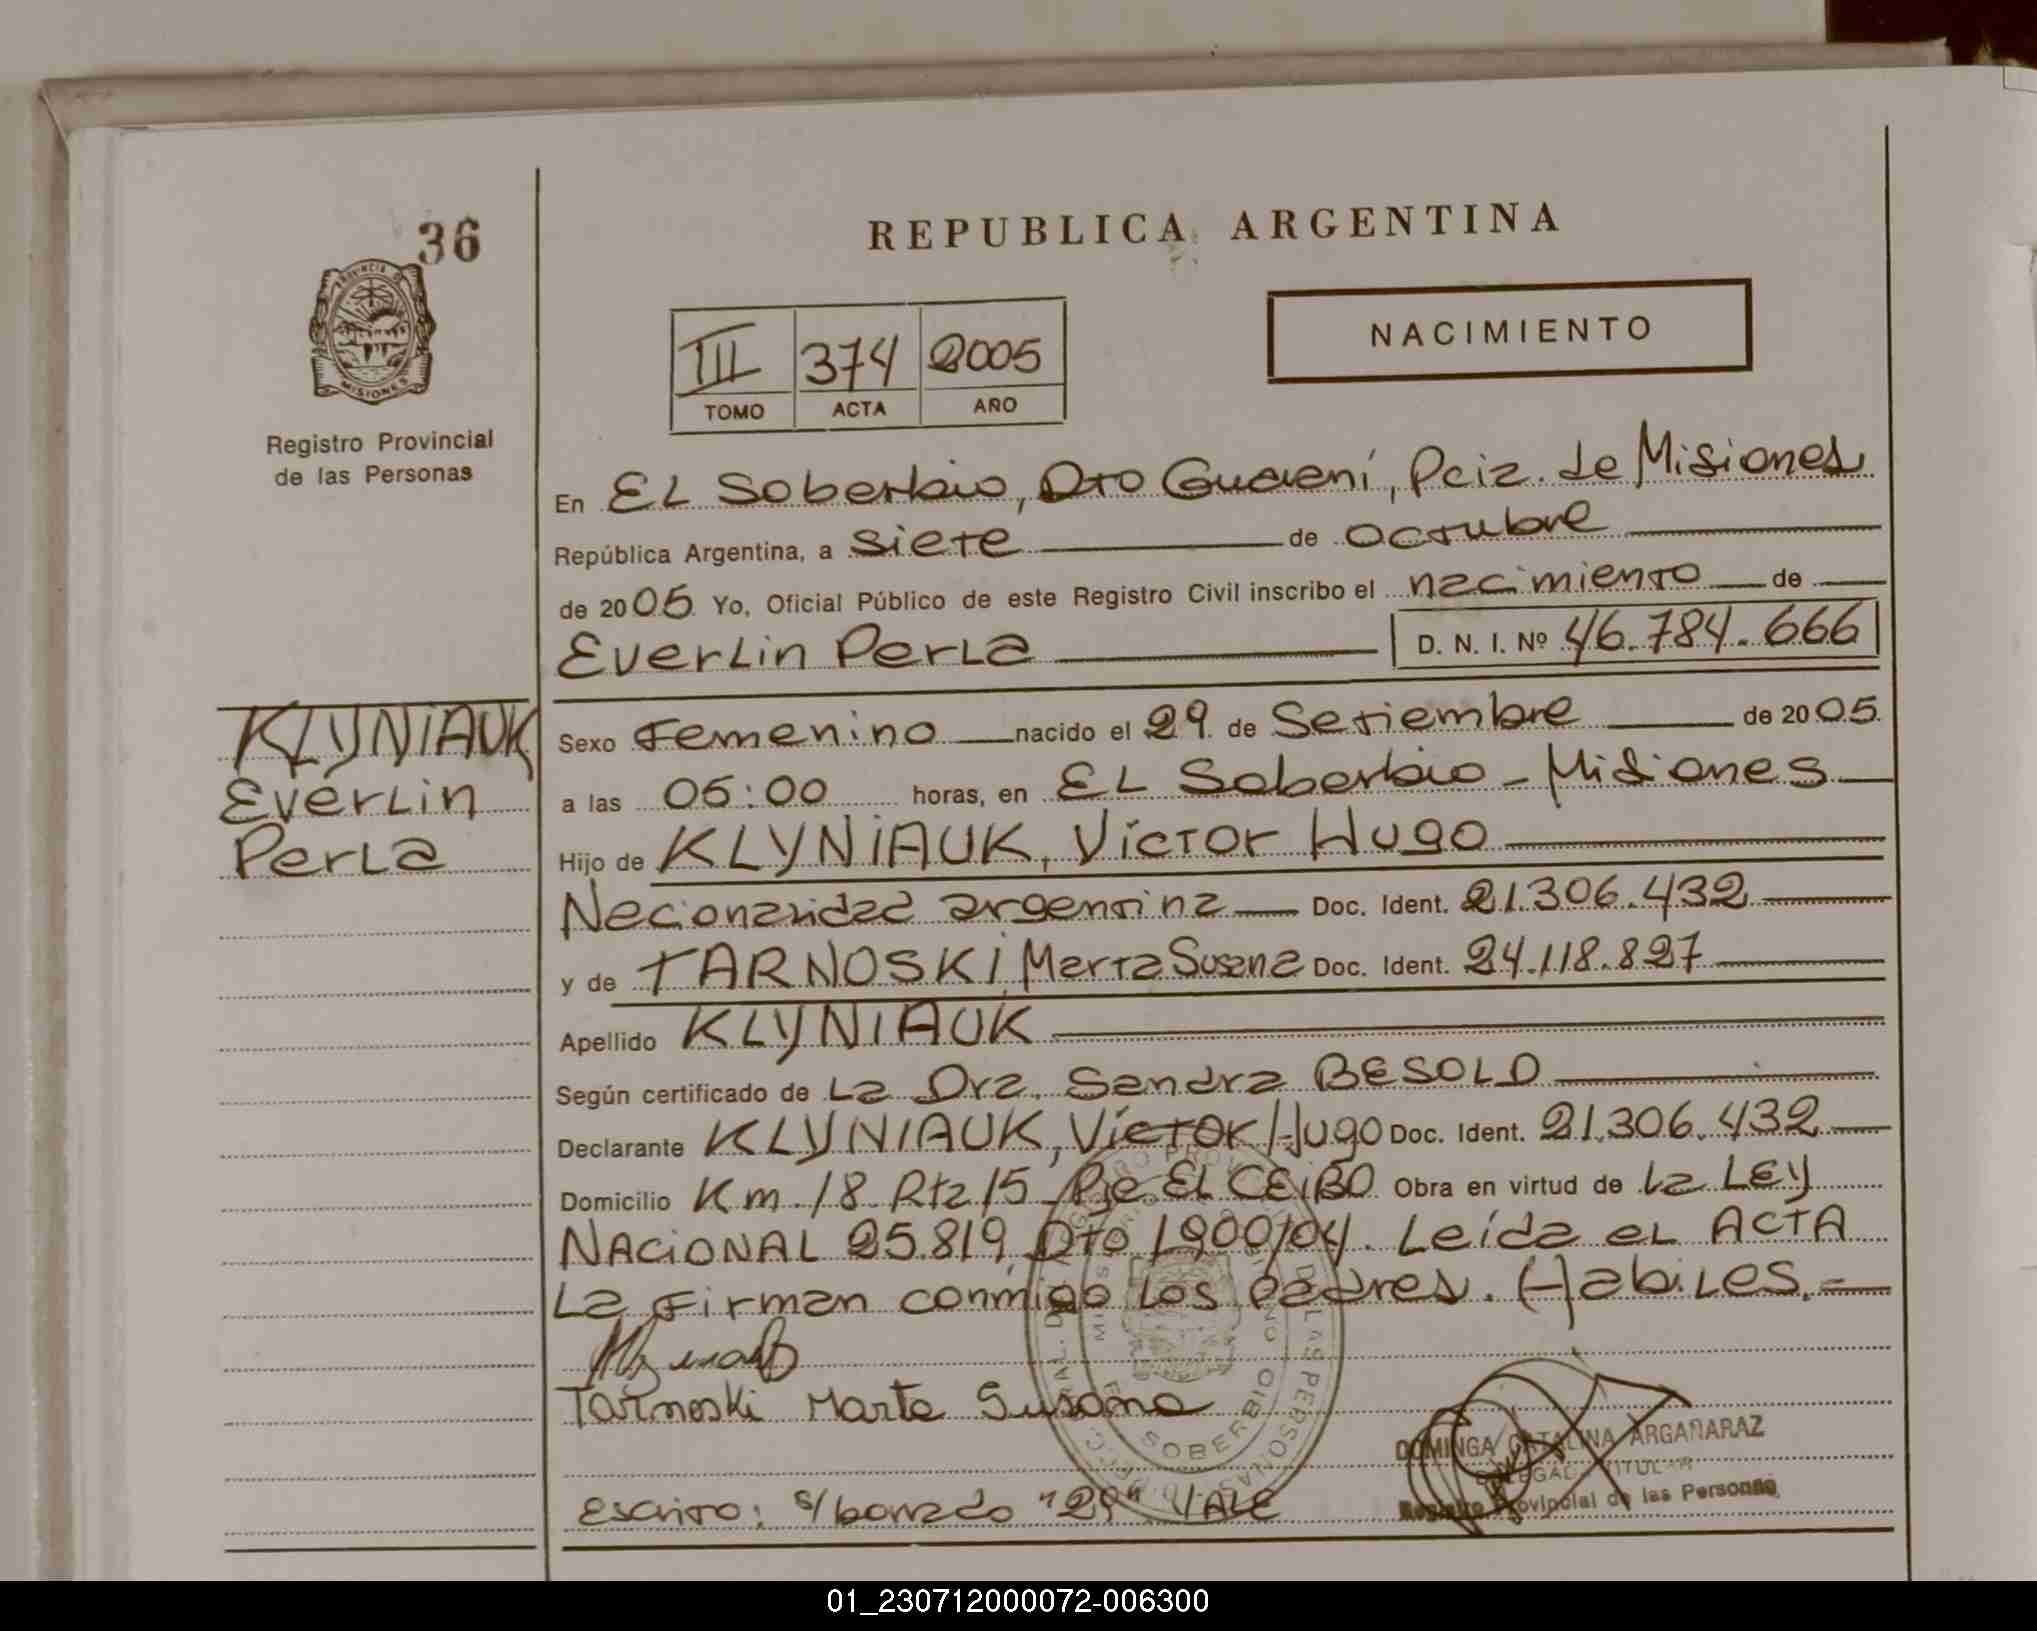 36
PROVINCIA DE
MISIONES
Registro Provincial
de las Personas
REPUBLICA ARGENTINA
NACIMIENTO
III 374 2005
TOMO ACTA AÑO
En EL Soberbio, Dto Guaraní, Pcia. de Misiones
República Argentina, a siete de octubre
de 2005. Yo, Oficial Público de este Registro Civil inscribo el nacimiento de
Everlin Perla D. N. I. Nº 46.784.666
KLYNIAUK
Everlin
Perla
Sexo Femenino nacido el 29 de Setiembre de 2005.
a las 05:00 horas, en EL Soberbio - Misiones
Hijo de KLYNIAUK, Víctor Hugo
Nacionalidad argentina Doc. Ident. 21.306.432
y de TARNOSKI, Marta Susana Doc. Ident. 24.118.827
Apellido KLYNIAUK
Según certificado de La Dra. Sandra BESOLD
Declarante KLYNIAUK, Víctor Hugo Doc. Ident. 21.306.432
Domicilio Km. 18 Rta 15 Pje EL CEIBO Obra en virtud de la LEY
NACIONAL 25.819, Dto 1900/04. Leída el ACTA
La firman conmigo los padres. Habiles.=
Tarnoski Marta Susana
SOBERBIO
DOMINGA CATALINA ARGAÑARAZ
DELEGADA TITULAR
Registro Provincial de las Personas
Escrito: s/borrado "29" VALE
01_230712000072-006300